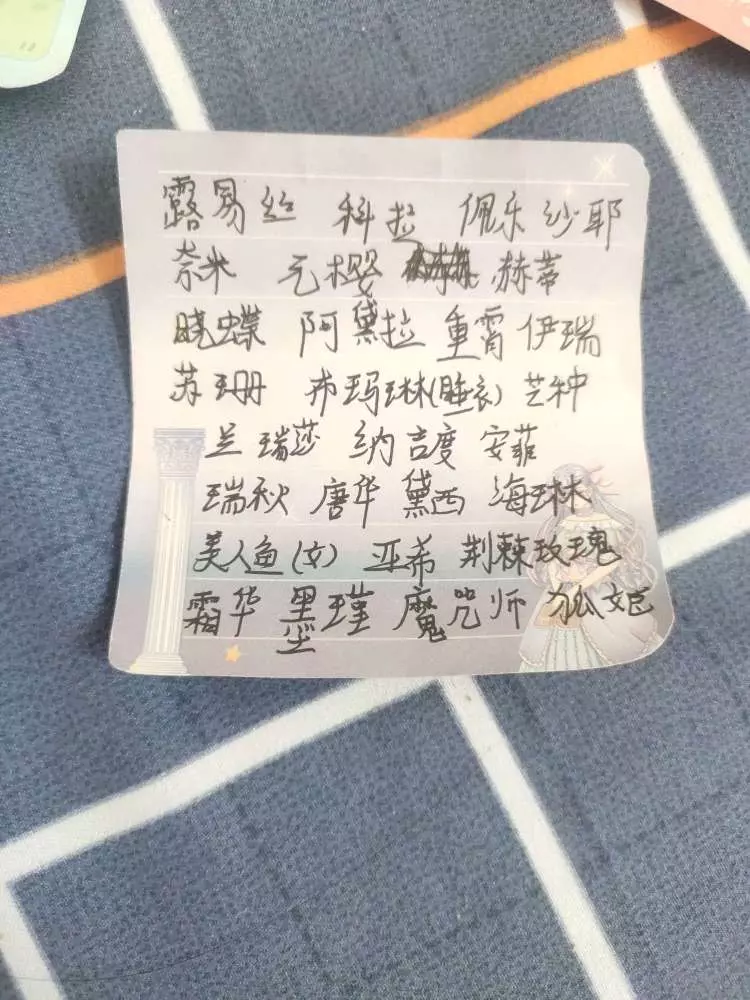 露易丝 科拉 佩乐 沙耶
奈米 元樱 赫蒂
晓蝶 阿黛拉 重霄 伊瑞
苏珊 布玛琳(睡衣) 芒种
兰瑞莎 纳吉度 安菲
瑞秋 唐华 黛西 海琳
美人鱼(女) 亚希 荆棘玫瑰
霜华 墨瑾 魔咒师 狐妃